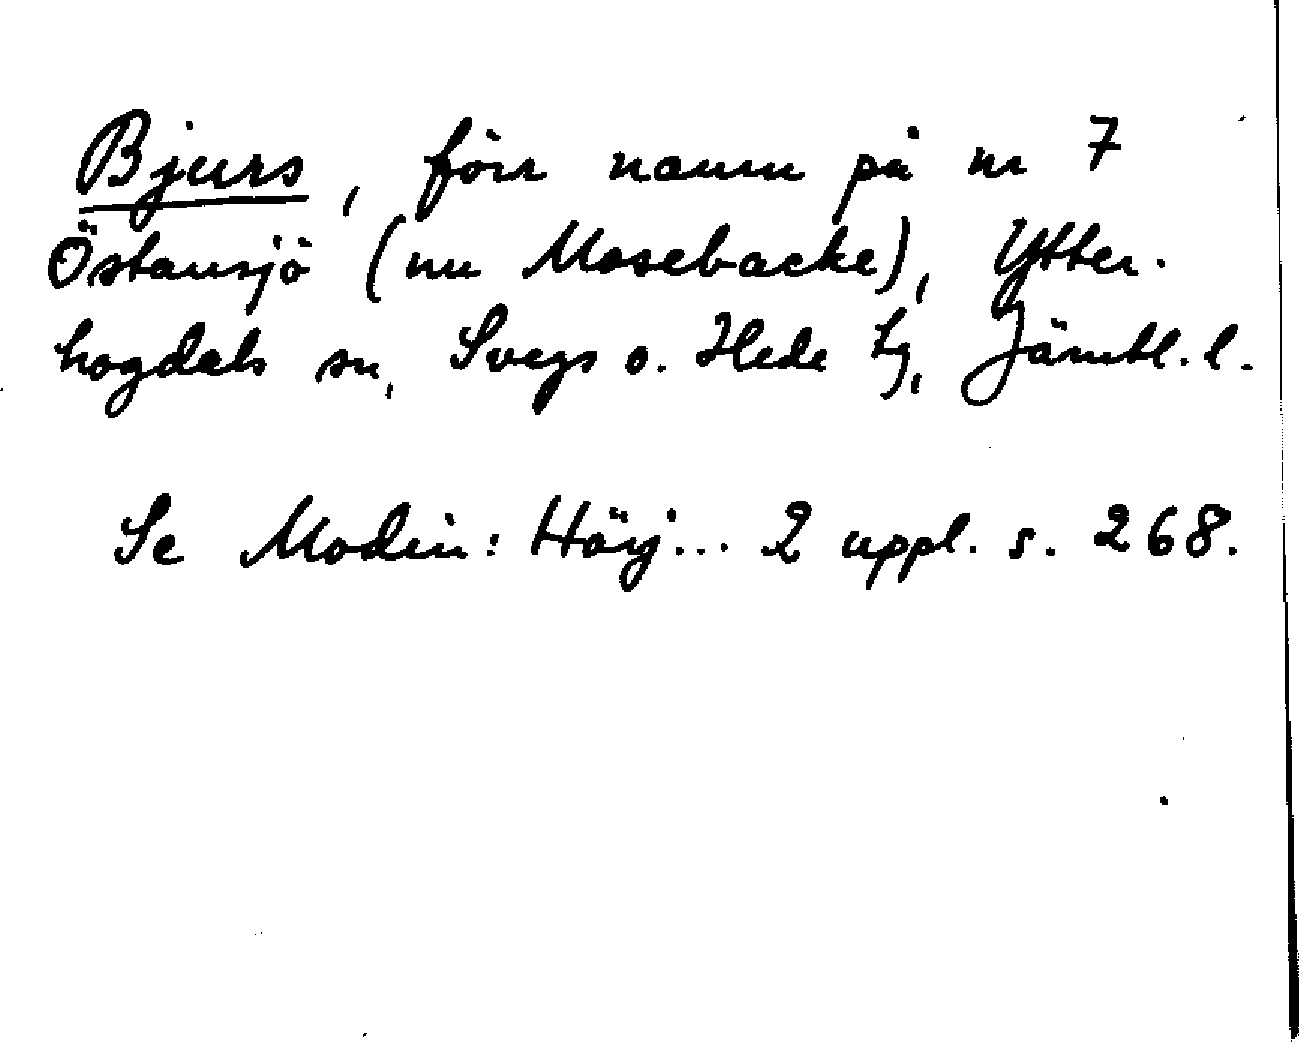 Bjurs, förr namn på nr 7
Östansjö (nu Mosebacke), Ytter-
hogdals sn, Svegs o. Hede tg, Jämtl. l.
Se Modin: Härj... 2 uppl. s. 268.